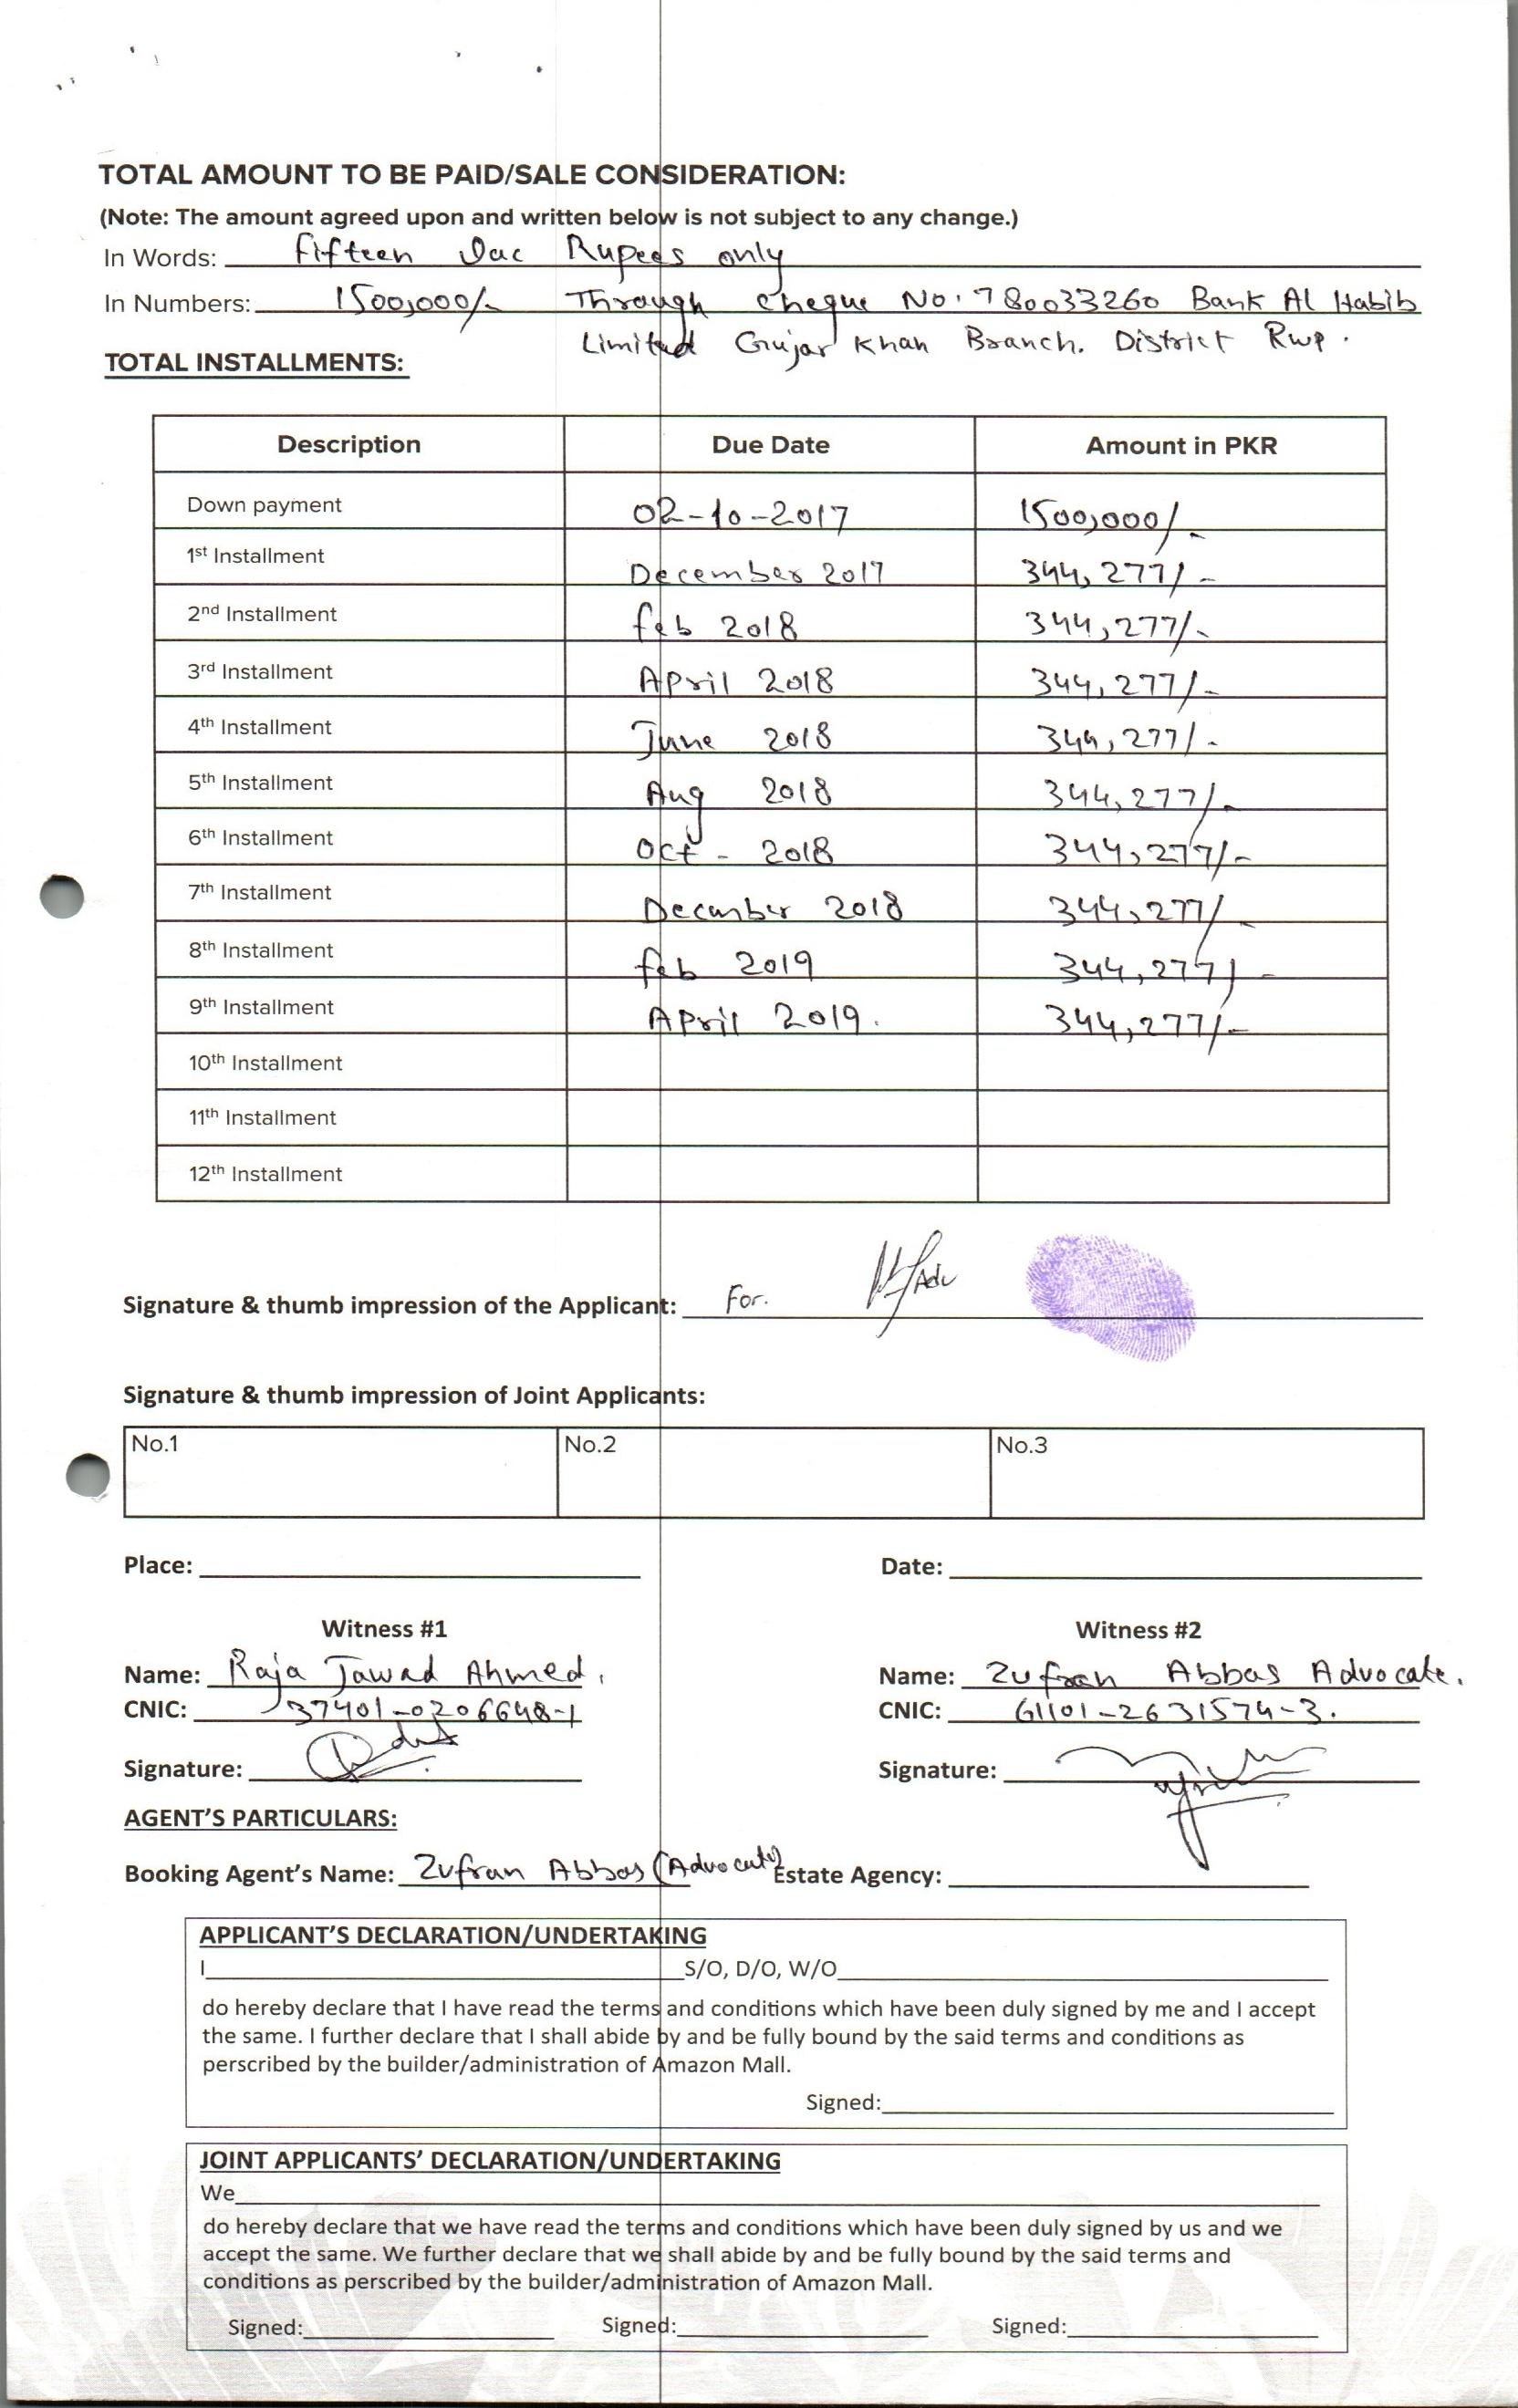 TOTAL AMOUNT TO BE PAID/SALE CONSIDERATION:
(Note: The amount agreed upon and written below is not subject to any change.)
In Words: Fifteen Lac Rupees only
In Numbers: 1500,000/- Through Cheque No. 780033260 Bank Al Habib
Limited Gujar Khan Branch. District Rwp.
TOTAL INSTALLMENTS:
Description Due Date Amount in PKR
Down payment 02-10-2017 1500,000/-
1st Installment December 2017 344,277/-
2nd Installment Feb 2018 344,277/-
3rd Installment April 2018 344,277/-
4th Installment June 2018 344,277/-
5th Installment Aug 2018 344,277/-
6th Installment Oct - 2018 344,277/-
7th Installment December 2018 344,277/-
8th Installment Feb 2019 344,277/-
9th Installment April 2019. 344,277/-
10th Installment
11th Installment
12th Installment
Signature & thumb impression of the Applicant: For. Adv
Signature & thumb impression of Joint Applicants:
No.1 No.2 No.3
Place: Date:
Witness #1 Witness #2
Name: Raja Jawad Ahmed. Name: Zufran Abbas Advocate.
CNIC: 37401-0206648-1 CNIC: 61101-2631574-3.
Signature: Signature:
AGENT'S PARTICULARS:
Booking Agent's Name: Zufran Abbas (Advocate) Estate Agency:
APPLICANT'S DECLARATION/UNDERTAKING
I S/O, D/O, W/O
do hereby declare that I have read the terms and conditions which have been duly signed by me and I accept
the same. I further declare that I shall abide by and be fully bound by the said terms and conditions as
perscribed by the builder/administration of Amazon Mall.
Signed:
JOINT APPLICANTS' DECLARATION/UNDERTAKING
We
do hereby declare that we have read the terms and conditions which have been duly signed by us and we
accept the same. We further declare that we shall abide by and be fully bound by the said terms and
conditions as perscribed by the builder/administration of Amazon Mall.
Signed: Signed: Signed: